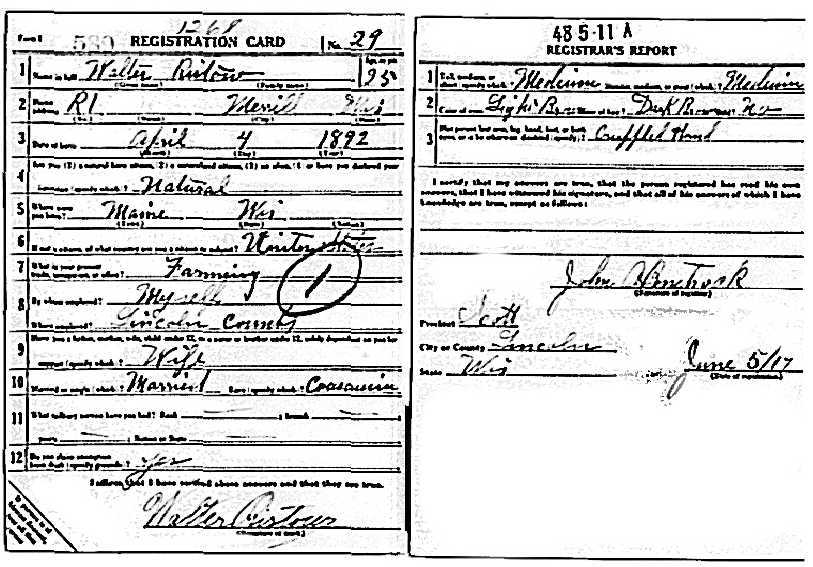 1268
Form 1 580 REGISTRATION CARD No. 29
1 Name in full Walter Ristow Age, in yrs. 25
(Given name) (Family name)
2 Home address R1 Merrill Wis
(No.) (Street) (City) (State)
3 Date of birth April 4 1892
(Month) (Day) (Year)
4 Are you (1) a natural born citizen, (2) a naturalized citizen, (3) an alien, (4) or have you declared your
intention (specify which)? Natural
5 Where were you born? Maine Wis
(Town) (State) (Nation)
6 If not a citizen, of what country are you a citizen or subject? United States
7 What is your present trade, occupation, or office? Farming
8 By whom employed? Myself
Where employed? Lincoln County
1
9 Have you a father, mother, wife, child under 12, or a sister or brother under 12, solely dependent on you for
support (specify which)? Wife
10 Married or single (which)? Married Race (specify which)? Caucasian
11 What military service have you had? Rank ; Branch
years ; Nation or State
12 Do you claim exemption from draft (specify grounds)? Yes
I affirm that I have verified above answers and that they are true.
Walter Ristow
(Signature or mark)
48 5-11 A
REGISTRAR'S REPORT
1 Tall, medium, or short (specify which)? Medium Slender, medium, or stout (which)? Medium
2 Color of eyes Light Brown Color of hair? Dark Brown Bald? No
3 Has person lost arm, leg, hand, foot, or both eyes, or is he otherwise disabled (specify)? Crippled Hand
I certify that my answers are true, that the person registered has read his own
answers, that I have witnessed his signature, and that all of his answers of which I have
knowledge are true, except as follows:
John
(Signature of registrar)
Precinct Scott
City or County Lincoln
State Wis June 5/17
(Date of registration)